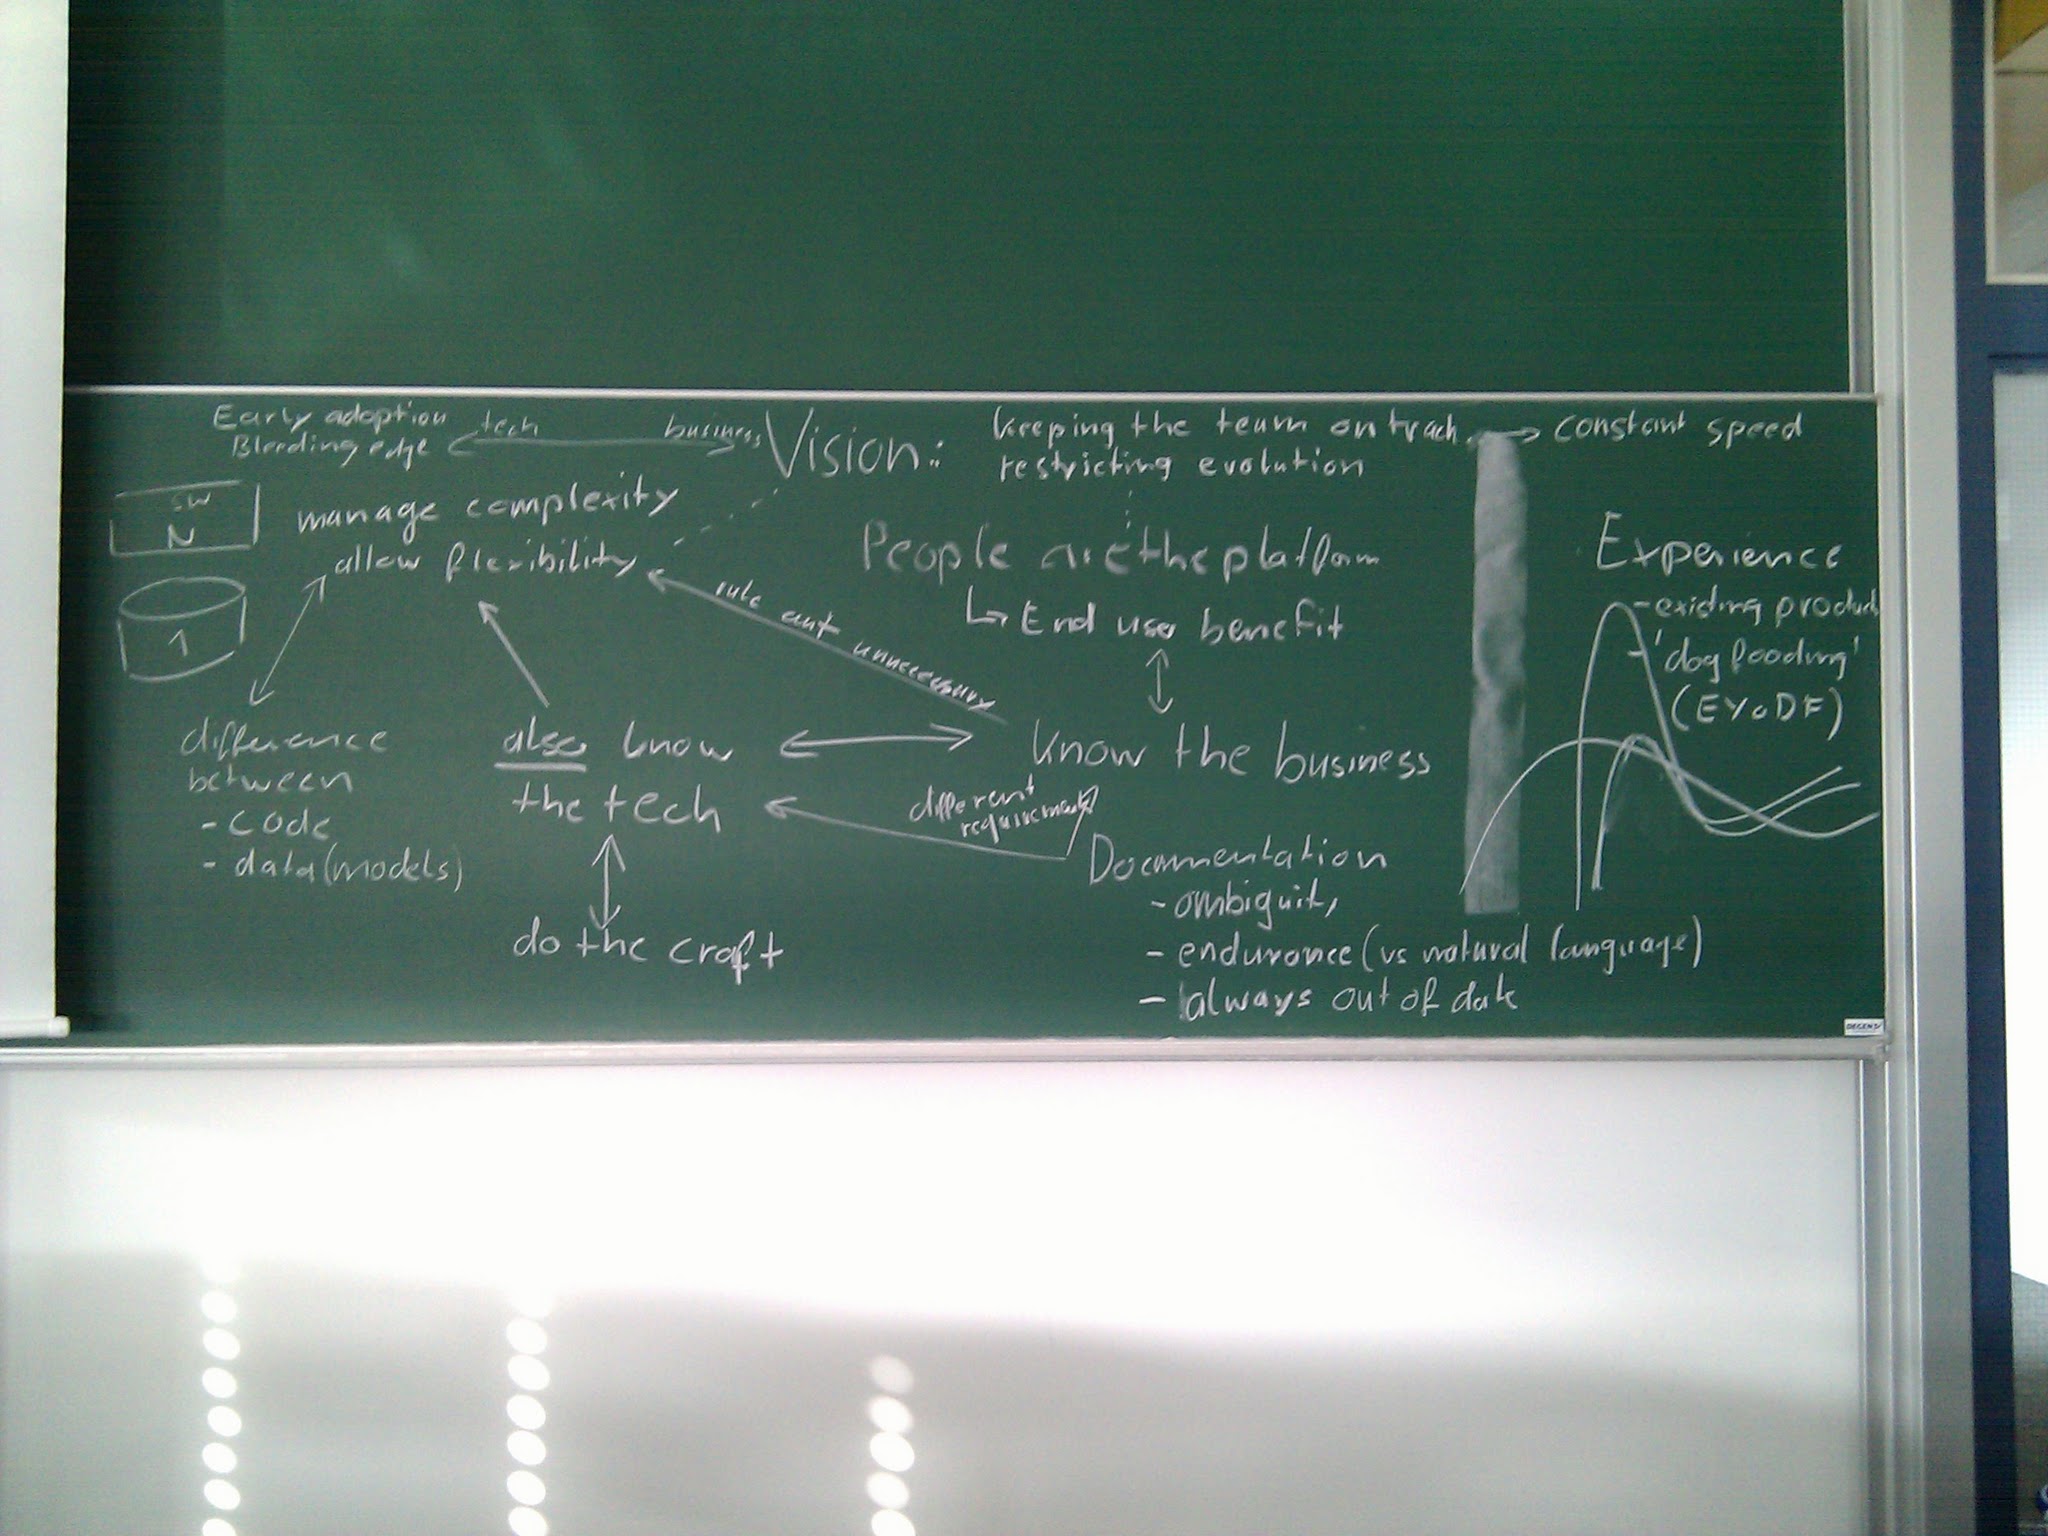 Early adoption
Bleeding edge
tech
business
Vision:
keeping the team on track
restricting evolution
constant speed
SW
N
1
manage complexity
allow flexibility
rule out unnecessary
People are the platform
End user benefit
Experience
- existing product
- 'dog fooding'
(EYoDF)
difference
between
- code
- data (models)
also know
the tech
know the business
different
requirements
do the craft
Documentation
- ambiguity
- endurance (vs natural language)
- always out of date